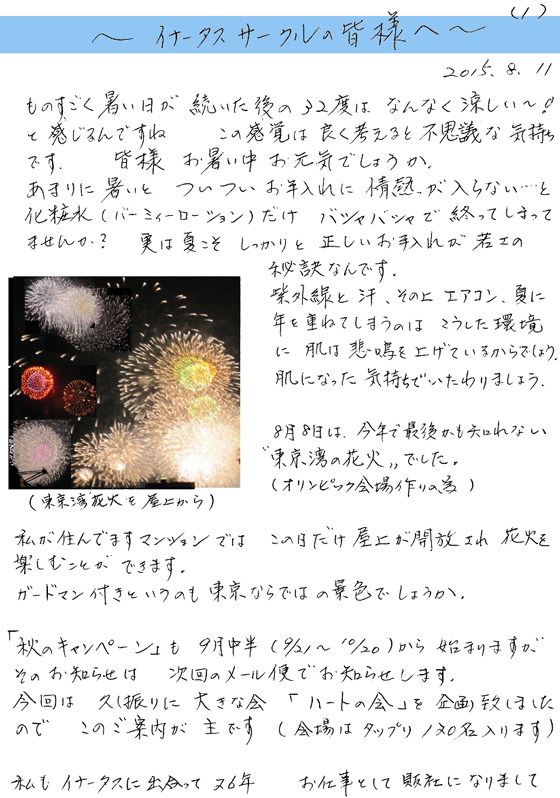 (1)
～ イナータス サークルの皆様へ ～
2015. 8. 11
ものすごく暑い日が 続いた後の 32度は なんなく涼しい～!
と感じるんですね この感覚は 良く考えると不思議な気持ち
です. 皆様 お暑い中 お元気でしょうか.
あまりに暑いと ついつい お手入れに 情熱が入らない…と
化粧水(バーミィーローション)だけ バシャバシャで 終ってしまって
ませんか? 実は夏こそ しっかりと 正しいお手入れが 若さの
秘訣なんです.
紫外線と汗、その上 エアコン、夏に
年を重ねてしまうのは こうした環境
に 肌は悲鳴を上げているからでしょう.
肌になった気持ちでいたわりましょう.
8月8日は、今年で最後かも知れない
"東京湾の花火" でした。
(オリンピック会場作りの為)
(東京湾花火を屋上から)
私が住んでますマンションでは この日だけ 屋上が開放され 花火を
楽しむことが できます.
ガードマン付きというのも東京ならではの景色でしょうか.
「秋のキャンペーン」も 9月中半 (9/21～10/20)から 始まりますが
そのお知らせは 次回のメール便でお知らせします.
今回は 久し振りに 大きな会 「ハートの会」を企画致しました
ので このご案内が 主です (会場は タップリ 120名入ります)
私も イナータスに出合って 26年 お仕事として 販社になりまして